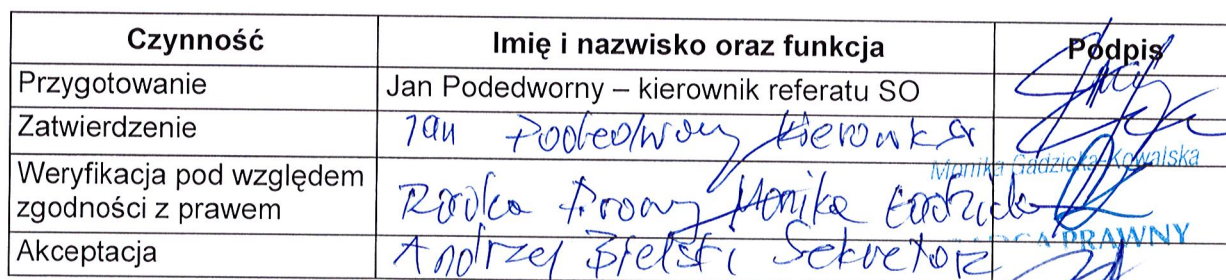 Czynność Imię i nazwisko oraz funkcja Podpis
Przygotowanie Jan Podedworny – kierownik referatu SO
Zatwierdzenie Jan Podedworny Kierownik
Monika Gadzicka-Kowalska
Weryfikacja pod względem
zgodności z prawem Radca Prawny Monika Gadzicka
PRAWNY
Akceptacja Andrzej Bielski Sekretarz